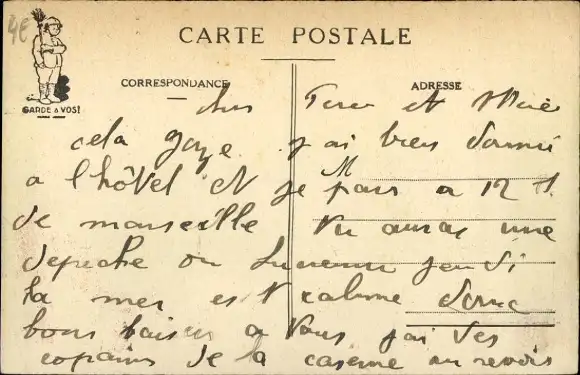 4€
CARTE POSTALE
GARDE à VOS!
CORRESPONDANCE
ADRESSE
M
chers Père et Mère
cela gaze j'ai bien dormi
a l'hôtel et je pars a 12 h
de marseille tu auras une
depeche ou jeudi
la mer est calume donc
bons baisers a vous j'ai des
copains de la caserne au revoir